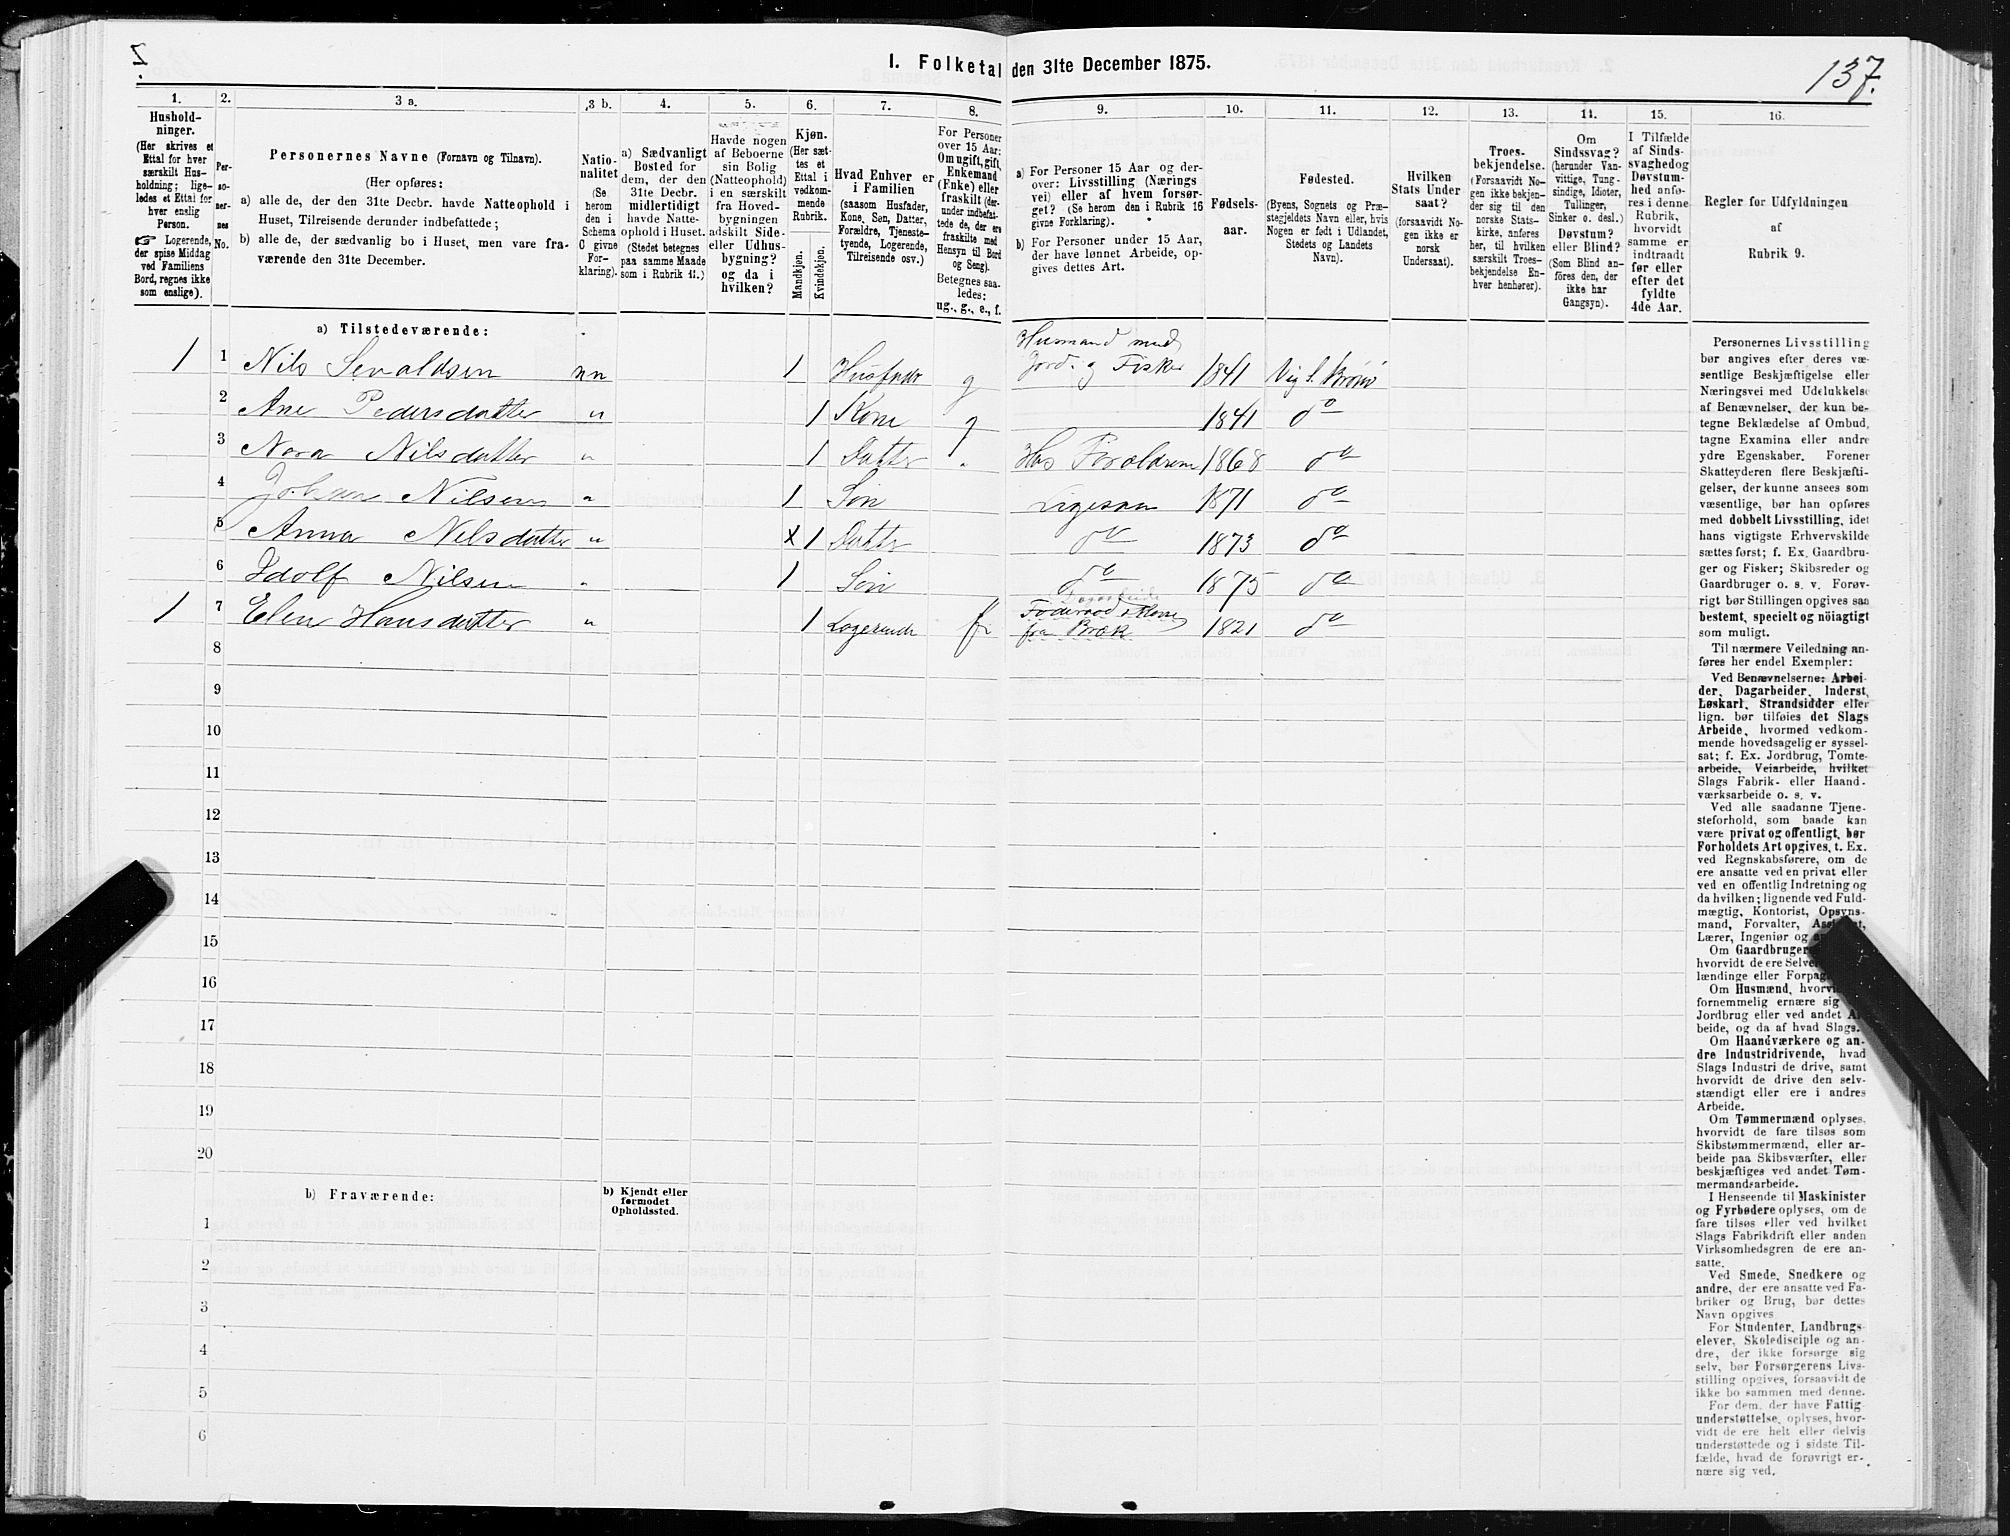 2.
1. Folketal den 31te December 1875.
137.
1.
2.
3 a.
3 b.
4.
5.
6.
7.
8.
9.
10.
11.
12.
13.
14.
15.
16.
Hushold-
ninger.
(Her skrives et
Ettal for hver
særskilt Hus-
holdning; lige-
ledes et Ettal for
hver enslig
Person.
☞ Logerende,
der spise Middag
ved Familiens
Bord, regnes ikke
som enslige).
Per-
so-
ner-
nes
No.
Personernes Navne (Fornavn og Tilnavn).
(Her opføres:
a) alle de, der den 31te Decbr. havde Natteophold i
Huset, Tilreisende derunder indbefattede;
b) alle de, der sædvanlig bo i Huset, men vare fra-
værende den 31te December.
Natio-
nalitet
(Se
herom
den i
Schema
C givne
For-
klaring).
a) Sædvanligt
Bosted for
dem, der den
31te Decbr.
midlertidigt
havde Natte-
ophold i Huset.
(Stedet betegnes
paa samme Maade
som i Rubrik 11.)
Havde nogen
af Beboerne
sin Bolig
(Natteophold)
i en særskilt
fra Hoved-
bygningen
adskilt Side-
eller Udhus-
bygning?
og da i
hvilken?
Kjøn.
(Her sæt-
tes et
Ettal i
vedkom-
mende
Rubrik.
Mandkjøn.
Kvindekjøn.
Hvad Enhver er
i Familien
(saasom Husfader,
Kone, Søn, Datter,
Forældre, Tjeneste-
tyende, Logerende,
Tilreisende osv.)
For Personer
over 15 Aar:
Om ugift, gift,
Enkemand
(Enke) eller
fraskilt (der-
under indbefat-
tede de, der ere
fraskilte med
Hensyn til Bord
og Seng).
Betegnes saa-
ledes:
ug., g., e., f.
a) For Personer 15 Aar og der-
over: Livsstilling (Nærings
vei) eller af hvem forsør-
get? (Se herom den i Rubrik 16
givne Forklaring).
b) For Personer under 15 Aar,
der have lønnet Arbeide, op-
gives dettes Art.
Fødsels-
aar.
Fødested.
(Byens, Sognets og Præ-
stegjeldets Navn eller, hvis
Nogen er født i Udlandet,
Stedets og Landets
Navn).
Hvilken
Stats Under
saat?
(forsaavidt No-
gen ikke er
norsk
Undersaat).
Troes-
bekjendelse.
(Forsaavidt No-
gen ikke bekjen-
der sig til den
norske Stats-
kirke, anføres
her, til hvilken
særskilt Troes-
bekjendelse En-
hver henhører).
Om
Sindssvag?
(herunder Van-
vittige, Tung-
sindige, Idioter,
Tullinger,
Sinker o. desl.)
Døvstum?
eller Blind?
(Som Blind an-
føres den, der
ikke har
Gangsyn).
I Tilfælde
af Sinds-
svaghed og
Døvstum-
hed anfø-
res i denne
Rubrik,
hvorvidt
samme er
indtraadt
før eller
efter det
fyldte
4de Aar.
Regler for Udfyldningen
af
Rubrik 9.
a) Tilstedeværende:
1 1 Nils Sevaldsen nn 1 Husfader g Husmand med Jord og Fisker 1841 Vig S. Brønø
2 Ane Pedersdatter " 1 Kone g 1841 do
3 Nora Nilsdatter " 1 Datter " Hos Forældrene 1868 do
4 Johan Nilsen " 1 Søn Ligesaa 1871 do
5 Anna Nilsdatter " X 1 Datter do 1873 do
6 Idolf Nilsen " 1 Søn do 1875 do
1 7 Elen Hansdatter " 1 Logerende fra Bræk 1821 do
8
9
10
11
12
13
14
15
16
17
18
19
20
b) Fraværende:
b) Kjendt eller
formodet
Opholdssted.
1
2
3
4
5
6
Personernes Livsstilling
bør angives efter deres væ-
sentlige Beskjæftigelse eller
Næringsvei med Udelukkelse
af Benævnelser, der kun be-
tegne Beklædelse af Ombud,
tagne Examina eller andre
ydre Egenskaber. Forener
Skatteyderen flere Beskjæfti-
gelser, der kunne ansees som
væsentlige, bør han opføres
med dobbelt Livsstilling, idet
hans vigtigste Erhvervskilde
sættes først; f. Ex. Gaardbru-
ger og Fisker; Skibsreder og
Gaardbruger o. s. v. Forøv-
rigt bør Stillingen opgives saa
bestemt, specielt og nöiagtigt
som muligt.
Til nærmere Veiledning an-
føres her endel Exempler:
Ved Benævnelserne: Arbei-
der, Dagarbeider, Inderst,
Løskarl, Strandsidder eller
lign. bør tilføies det Slags
Arbeide, hvormed vedkom-
mende hovedsagelig er syssel-
sat; f. Ex. Jordbrug, Tomte-
arbeide, Veiarbeide, hvilket
Slags Fabrik- eller Haand-
værksarbeide o. s. v.
Ved alle saadanne Tjene-
steforhold, som baade kan
være privat og offentligt, bør
Forholdets Art opgives, t. Ex.
ved Regnskabsførere, om de
ere ansatte ved en privat eller
ved en offentlig Indretning og
da hvilken; lignende ved Fuld-
mægtig, Kontorist, Opsyns-
mand, Forvalter, Assistent,
Lærer, Ingeniør og
Om Gaardbrugere
hvorvidt de ere
lændinge eller
Om Husmænd,
fornemmelig ernære sig
Jordbrug eller ved andet
beide, og da af hvad Slags.
Om Haandværkere og an-
dre Industridrivende, hvad
Slags Industri de drive, samt
hvorvidt de drive den selv-
stændigt eller ere i andres
Arbeide.
Om Tømmermænd oplyses,
hvorvidt de fare tilsøs som
Skibstømmermænd, eller ar-
beide paa Skibsværfter, eller
beskjæftiges ved andet Tøm-
mermandsarbeide.
I Henseende til Maskinister
og Fyrbødere oplyses, om de
fare tilsøs eller ved hvilket
Slags Fabrikdrift eller anden
Virksomhedsgren de ere an-
satte.
Ved Smede, Snedkere og
andre, der ere ansatte ved Fa-
briker og Brug, bør dettes
Navn opgives
For Studenter, Landbrugs-
elever, Skoledisciple og an-
dre, der ikke forsørge sig
selv, bør Forsørgerens Livs-
stilling opgives, forsaavidt de
ikke bo sammen med denne.
For dem, der have Fattig-
understøttelse, oplyses, hvor-
vidt de ere helt eller delvis
understøttede og i sidste Til-
fælde, hvad de forøvrigt er-
nære sig ved.